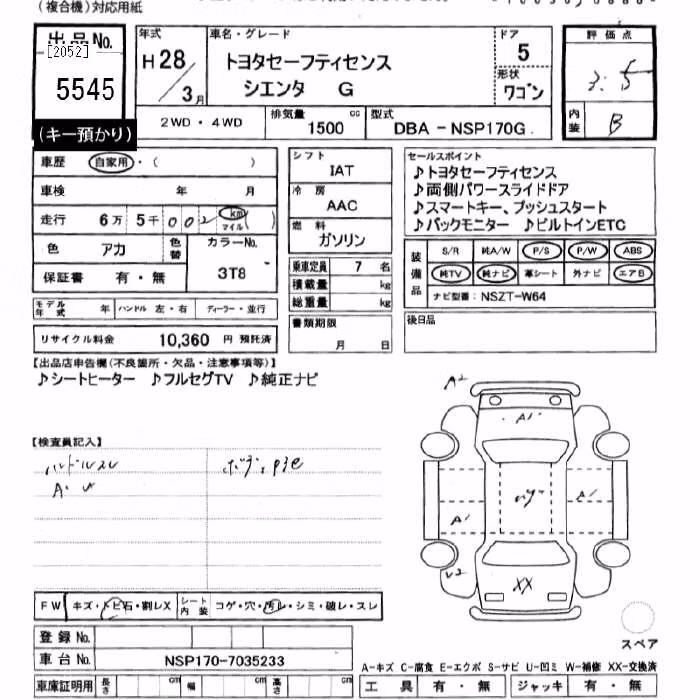 (複合機)対応用紙
出品No. 年式 車名・グレード ドア 評価点
[2052]
5545
H 28/3月
トヨタセーフティセンス
シエンタ G
5
形状
ワゴン
3.5
内装 B
(キー預かり)
2WD・4WD
排気量 cc
1500
型式
DBA-NSP170G
車歴 自家用・( )
車検 年 月
走行 6万 5千 002 km マイル ( )
色 アカ 色替 カラーNo. 3T8
保証書 有・無
シフト
IAT
冷房
AAC
燃料
ガソリン
乗車定員 7 名
積載量 kg
総重量 kg
セールスポイント
♪トヨタセーフティセンス
♪両側パワースライドドア
♪スマートキー、プッシュスタート
♪バックモニター ♪ビルトインETC
装備品
S/R 純A/W P/S P/W ABS
純TV 純ナビ 革シート 外ナビ エアB
ナビ型番: NSZT-W64
モデル年式 年 ハンドル 左・右 ディーラー・並行
書類期限
月 日
後日品
リサイクル料金 10,360 円 預託済
【出品店申告欄(不良箇所・欠品・注意事項等)】
♪シートヒーター ♪フルセグTV ♪純正ナビ
【検査員記入】
ハンドルスレ
A2
A1
A1
A1
XX
FW キズ・トビ石・割レX シート内装 コゲ・穴・汚レ・シミ・破レ・スレ
登録No.
車台No. NSP170-7035233
スペア
A-キズ C-腐食 E-エクボ S-サビ U-凹ミ W-補修 XX-交換済
車庫証明用 長さ cm 幅 cm 高さ cm
工具 有・無 ジャッキ 有・無